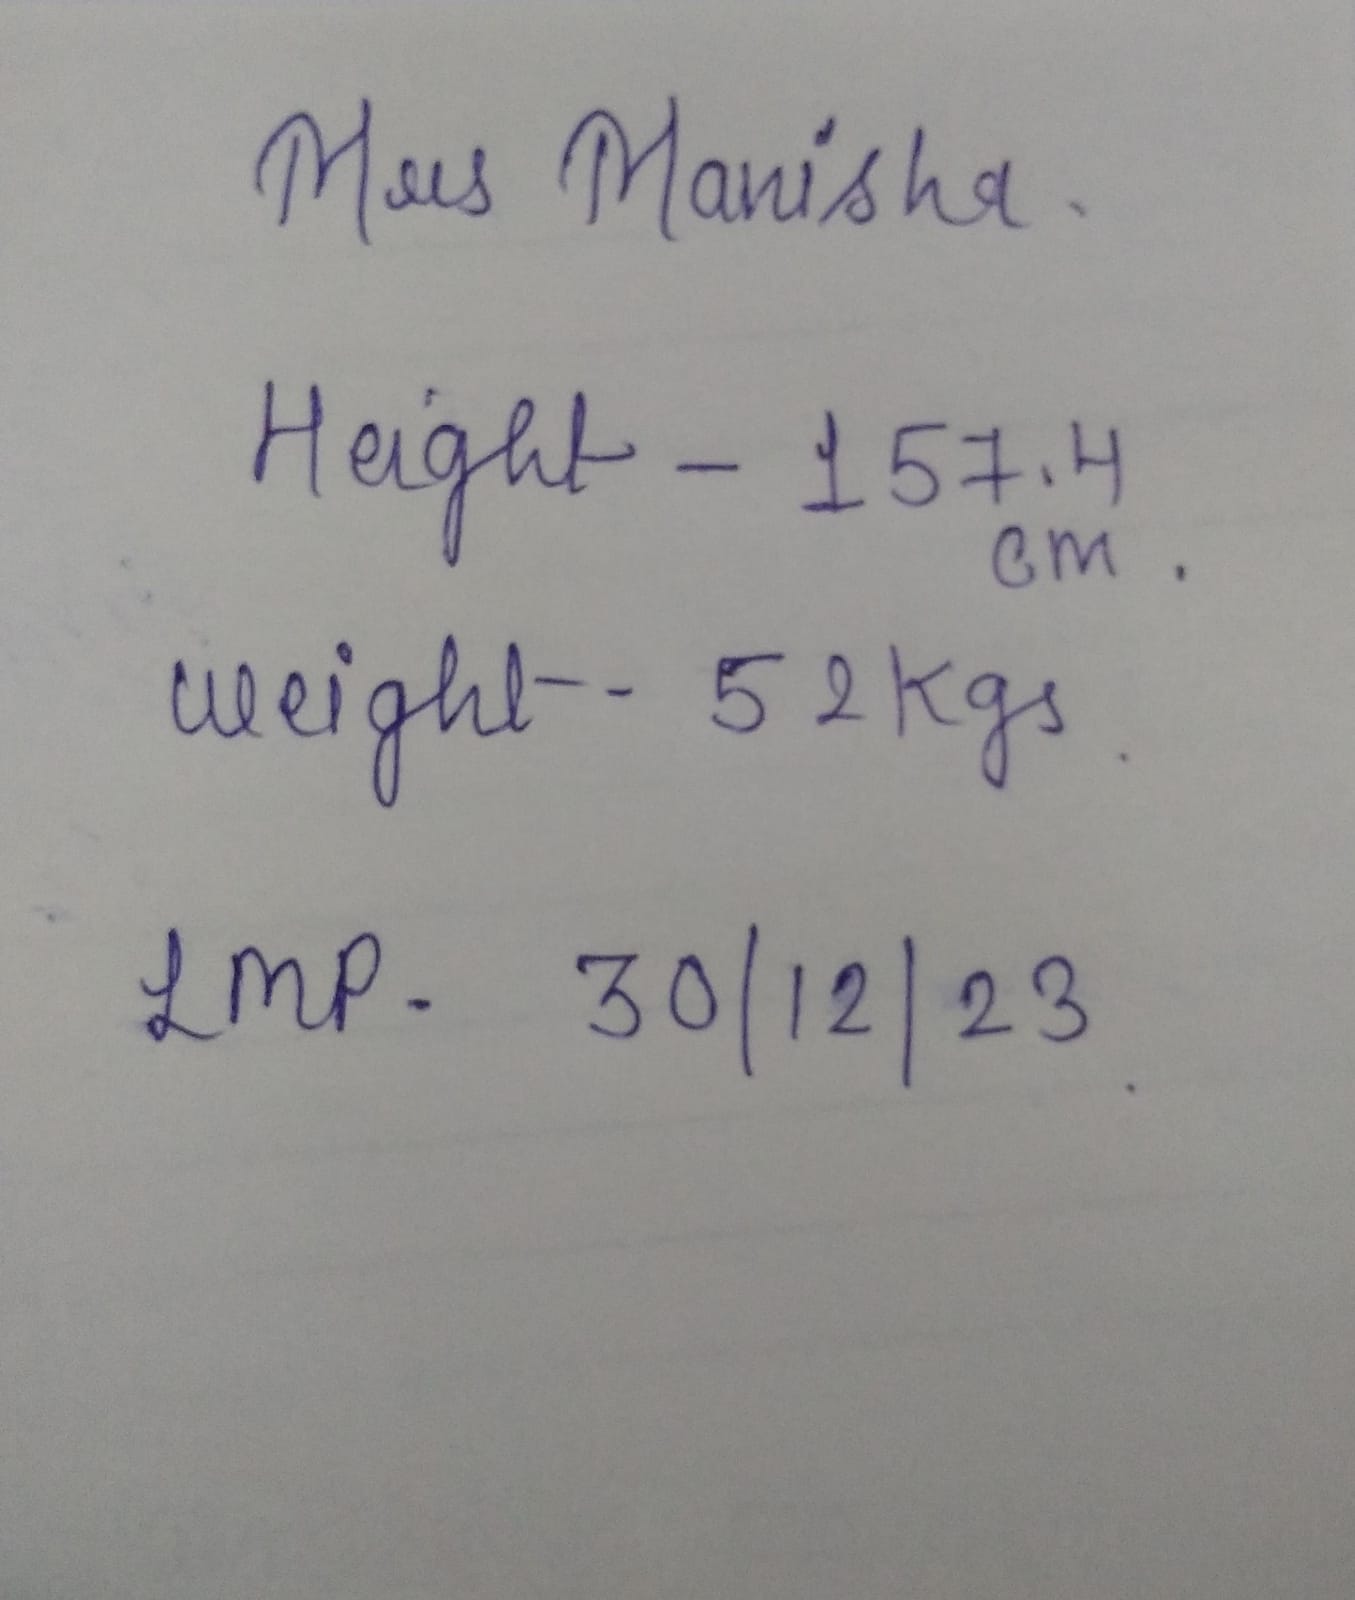 Mrs Manisha.
Height - 157.4
cm.
weight-- 52kgs.
LMP- 30/12/23.